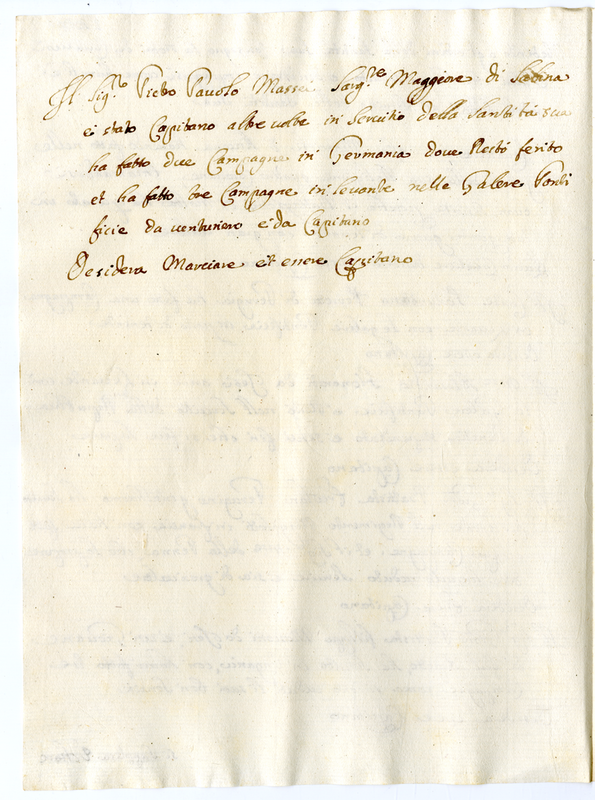 Il Sig.re Pietro Pavolo Massei Sarg.te Maggiore di Sabina
é stato Capitano altre volte in Servitio della Santità sua
ha fatto due Campagne in Germania dove Restó ferito
et ha fatto tre Campagne in levante nelle Galere Ponti
ficie da venturiero e da Capitano
Desidera Marciare et enere Capitano